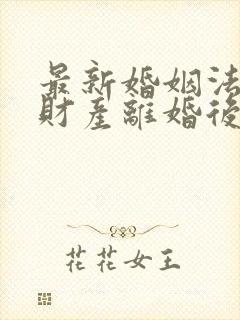 最新婚姻法
財產離婚後
花花女王